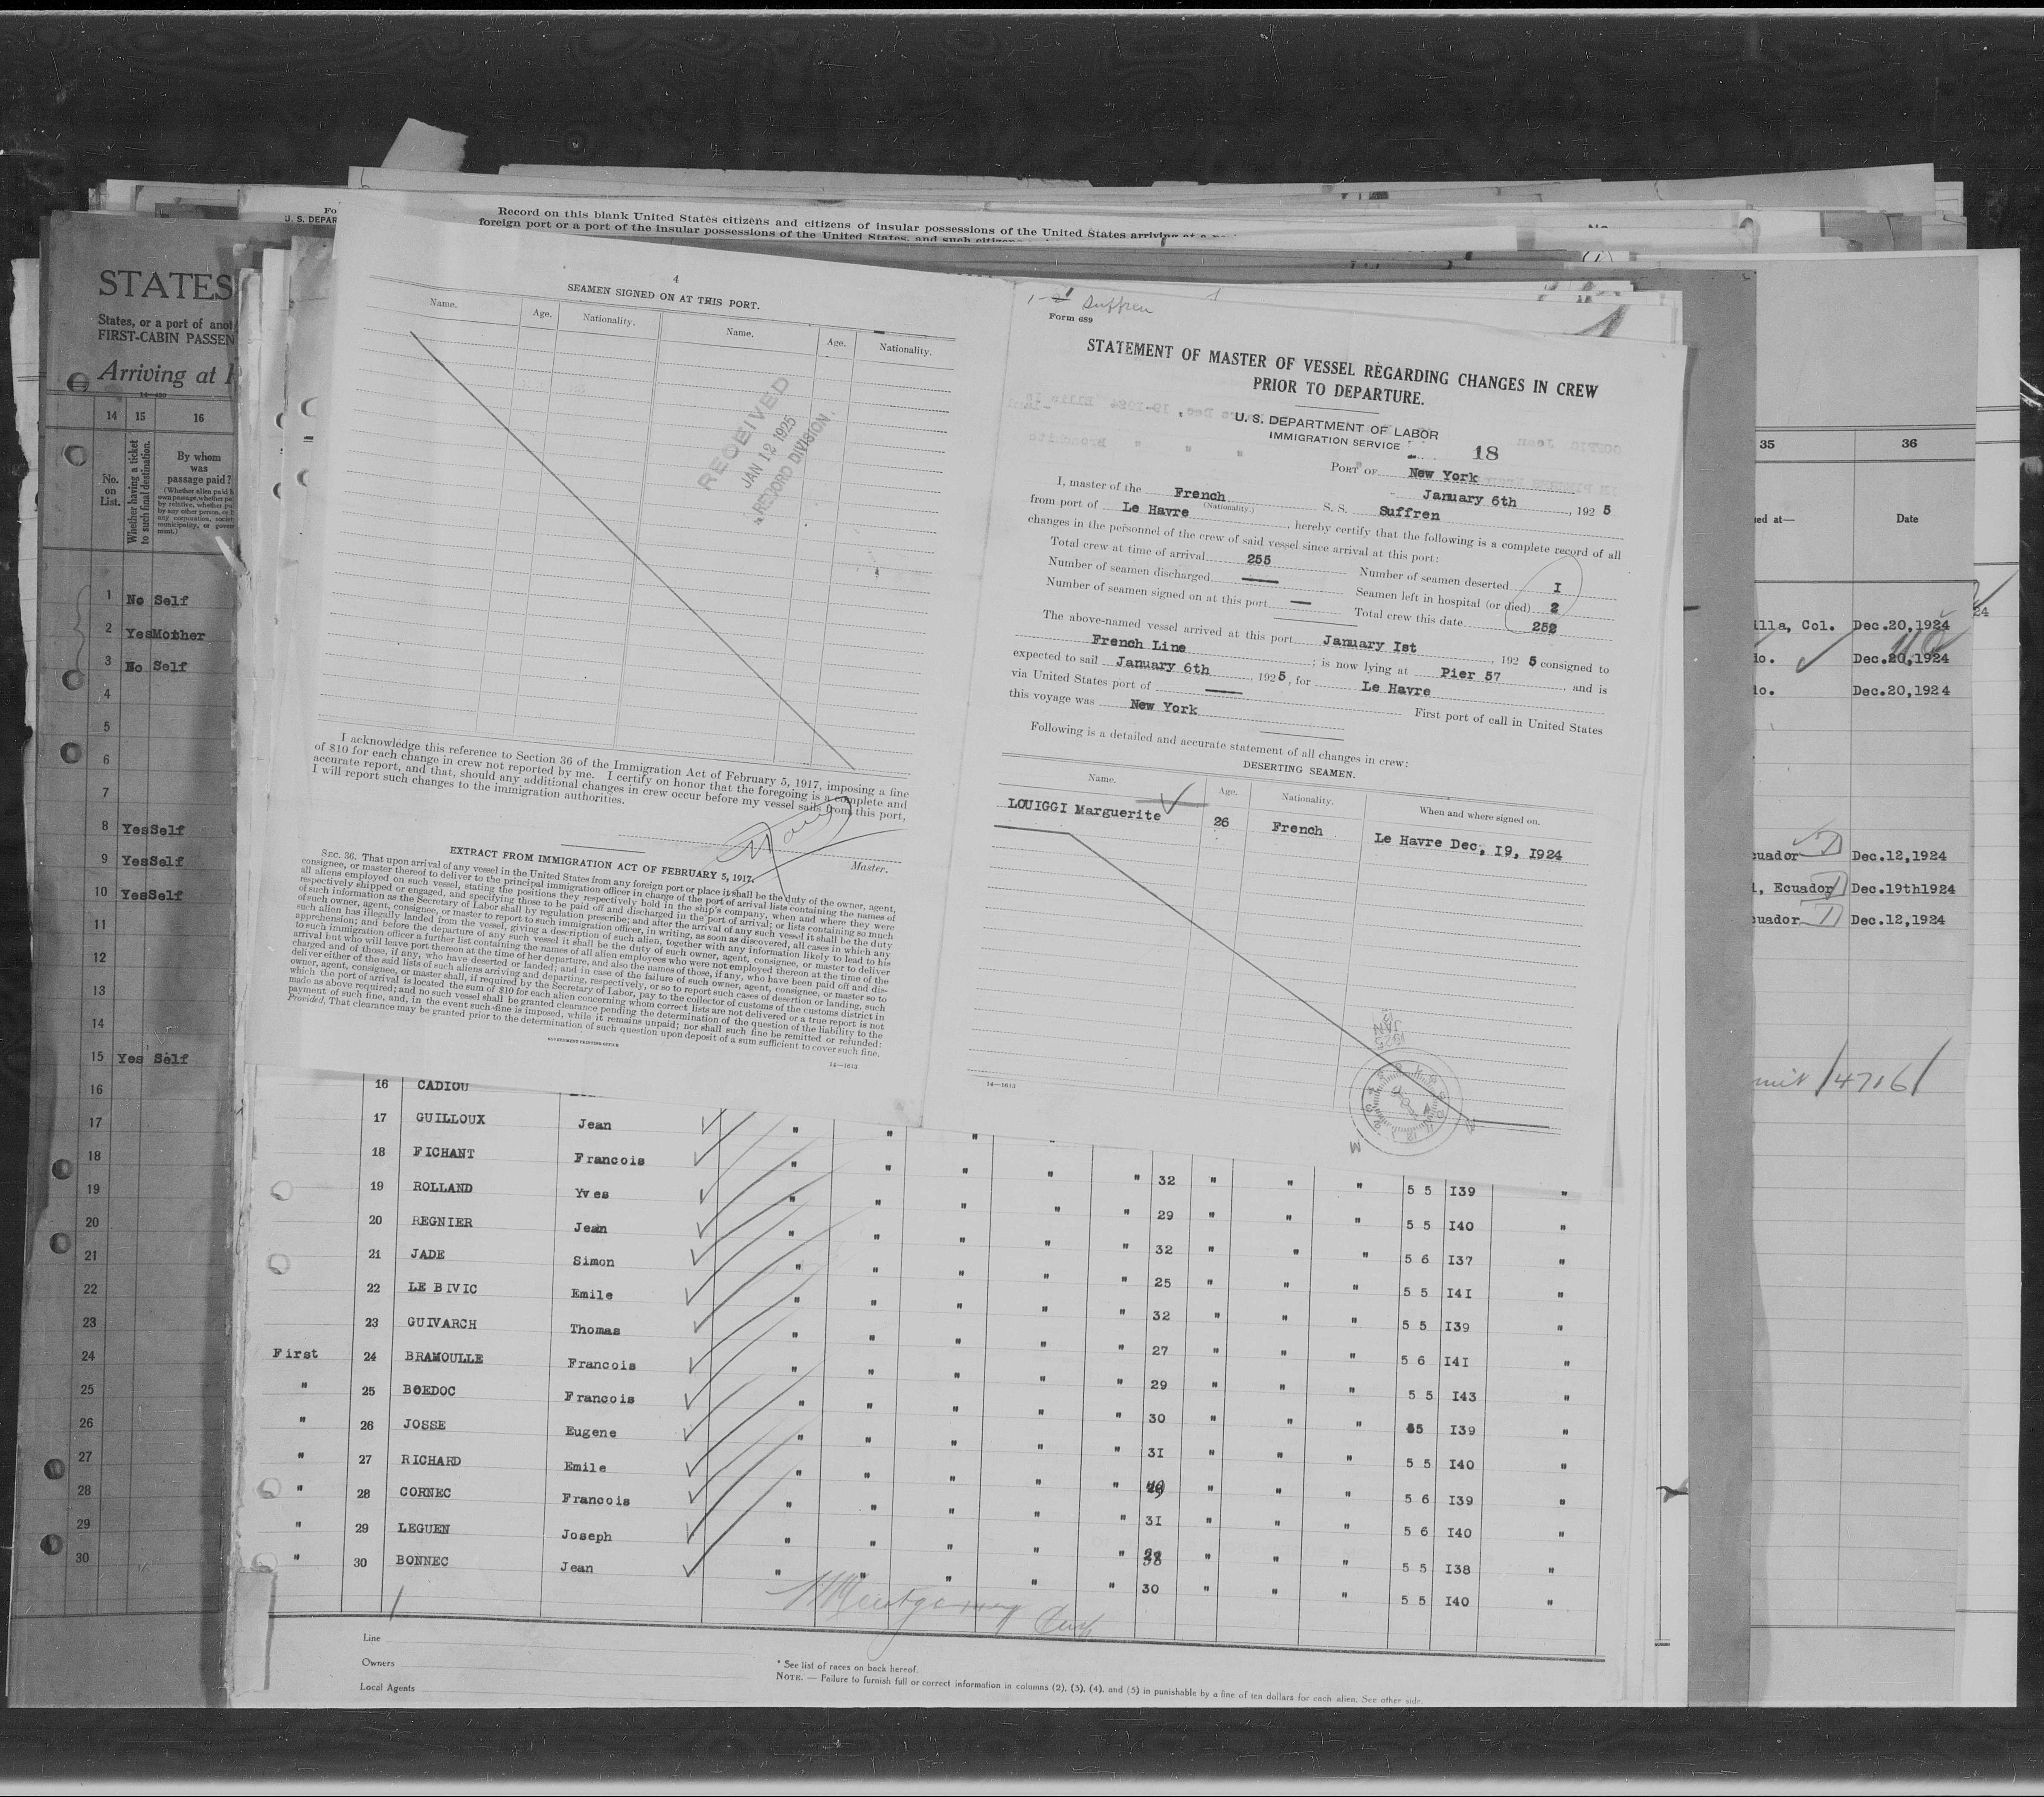 Record on this blank United States citizens and citizens of insular possessions of the United States arriving at a
foreign port or a port of the insular possessions of the United States, and such citizens
U. S. DEPAR
STATES
States, or a port of anot
FIRST-CABIN PASSEN
Arriving at
14 15 16
No. on List.
Whether having a ticket to such final destination.
By whom was passage paid?
1 No Self
2 Yes Mother
3 No Self
4
5
6
7
8 Yes Self
9 Yes Self
10 Yes Self
11
12
13
14
15 Yes Self
16
17
18
19
20
21
22
23
24
25
26
27
28
29
30
4
SEAMEN SIGNED ON AT THIS PORT.
Name. Age. Nationality. Name. Age. Nationality.
RECEIVED
JAN 12 1925
RECORD DIVISION.
I acknowledge this reference to Section 36 of the Immigration Act of February 5, 1917, imposing a fine
of $10 for each change in crew not reported by me. I certify on honor that the foregoing is a complete and
accurate report, and that, should any additional changes in crew occur before my vessel sails from this port,
I will report such changes to the immigration authorities.
Master.
EXTRACT FROM IMMIGRATION ACT OF FEBRUARY 5, 1917.
SEC. 36. That upon arrival of any vessel in the United States from any foreign port or place it shall be the duty of the owner, agent,
consignee, or master thereof to deliver to the principal immigration officer in charge of the port of arrival lists containing the names of
all aliens employed on such vessel, stating the positions they respectively hold in the ship's company, when and where they were
respectively shipped or engaged, and specifying those to be paid off and discharged in the port of arrival; or lists containing so much
of such information as the Secretary of Labor shall by regulation prescribe; and after the arrival of any such vessel it shall be the duty
of such owner, agent, consignee, or master to report to such immigration officer, in writing, as soon as discovered, all cases in which any
such alien has illegally landed from the vessel, giving a description of such alien, together with any information likely to lead to his
apprehension; and before the departure of any such vessel it shall be the duty of such owner, agent, consignee, or master to deliver
to such immigration officer a further list containing the names of all alien employees who were not employed thereon at the time of the
arrival but who will leave port thereon at the time of her departure, and also the names of those, if any, who have been paid off and dis-
charged and of those, if any, who have deserted or landed; and in case of the failure of such owner, agent, consignee, or master so to
deliver either of the said lists of such aliens arriving and departing, respectively, or so to report such cases of desertion or landing, such
owner, agent, consignee, or master shall, if required by the Secretary of Labor, pay to the collector of customs of the customs district in
which the port of arrival is located the sum of $10 for each alien concerning whom correct lists are not delivered or a true report is not
made as above required; and no such vessel shall be granted clearance pending the determination of the question of the liability to the
payment of such fine, and, in the event such fine is imposed, while it remains unpaid; nor shall such fine be remitted or refunded:
Provided, That clearance may be granted prior to the determination of such question upon deposit of a sum sufficient to cover such fine.
GOVERNMENT PRINTING OFFICE
14—1613
Suffren
Form 689
STATEMENT OF MASTER OF VESSEL REGARDING CHANGES IN CREW
PRIOR TO DEPARTURE.
U. S. DEPARTMENT OF LABOR
IMMIGRATION SERVICE
18
PORT OF New York
January 6th, 1925
I, master of the French S. S. Suffren
(Nationality.)
from port of Le Havre, hereby certify that the following is a complete record of all
changes in the personnel of the crew of said vessel since arrival at this port:
Total crew at time of arrival 255 Number of seamen deserted I
Number of seamen discharged — Seamen left in hospital (or died) 2
Number of seamen signed on at this port — Total crew this date 252
The above-named vessel arrived at this port January Ist, 1925 consigned to
French Line; is now lying at Pier 57, and is
expected to sail January 6th, 1925, for Le Havre
via United States port of — First port of call in United States
this voyage was New York
Following is a detailed and accurate statement of all changes in crew:
DESERTING SEAMEN.
Name. Age. Nationality. When and where signed on.
LOUIGGI Marguerite 26 French Le Havre Dec, I9, I924
14—1613
35 36
ed at— Date
illa, Col. Dec.20,1924
do. Dec.20,1924
do. Dec.20,1924
cuador Dec.12,1924
i, Ecuador Dec.19th1924
cuador Dec.12,1924
16 CADIOU
17 GUILLOUX Jean " " "
18 FICHANT Francois " " " " " 32 " " " 5 5 I39 "
19 ROLLAND Yves " " " " " 29 " " " 5 5 I40 "
20 REGNIER Jean " " " " " 32 " " " 5 6 I37 "
21 JADE Simon " " " " " 25 " " " 5 5 I4I "
22 LE BIVIC Emile " " " " " 32 " " " 5 5 I39 "
23 GUIVARCH Thomas " " " " " 27 " " " 5 6 I4I "
First 24 BRAMOULLE Francois " " " " " 29 " " " 5 5 I43 "
" 25 BOEDOC Francois " " " " " 30 " " " 55 I39 "
" 26 JOSSE Eugene " " " " " 3I " " " 5 5 I40 "
" 27 RICHARD Emile " " " " " " " " 5 6 I39 "
" 28 CORNEC Francois " " " " " 3I " " " 5 6 I40 "
" 29 LEGUEN Joseph " " " " " " " " 5 5 I38 "
" 30 BONNEC Jean " " " " " 30 " " " 5 5 I40 "
Line
Owners
Local Agents
* See list of races on back hereof.
NOTE. — Failure to furnish full or correct information in columns (2), (3), (4), and (5) in punishable by a fine of ten dollars for each alien. See other side.